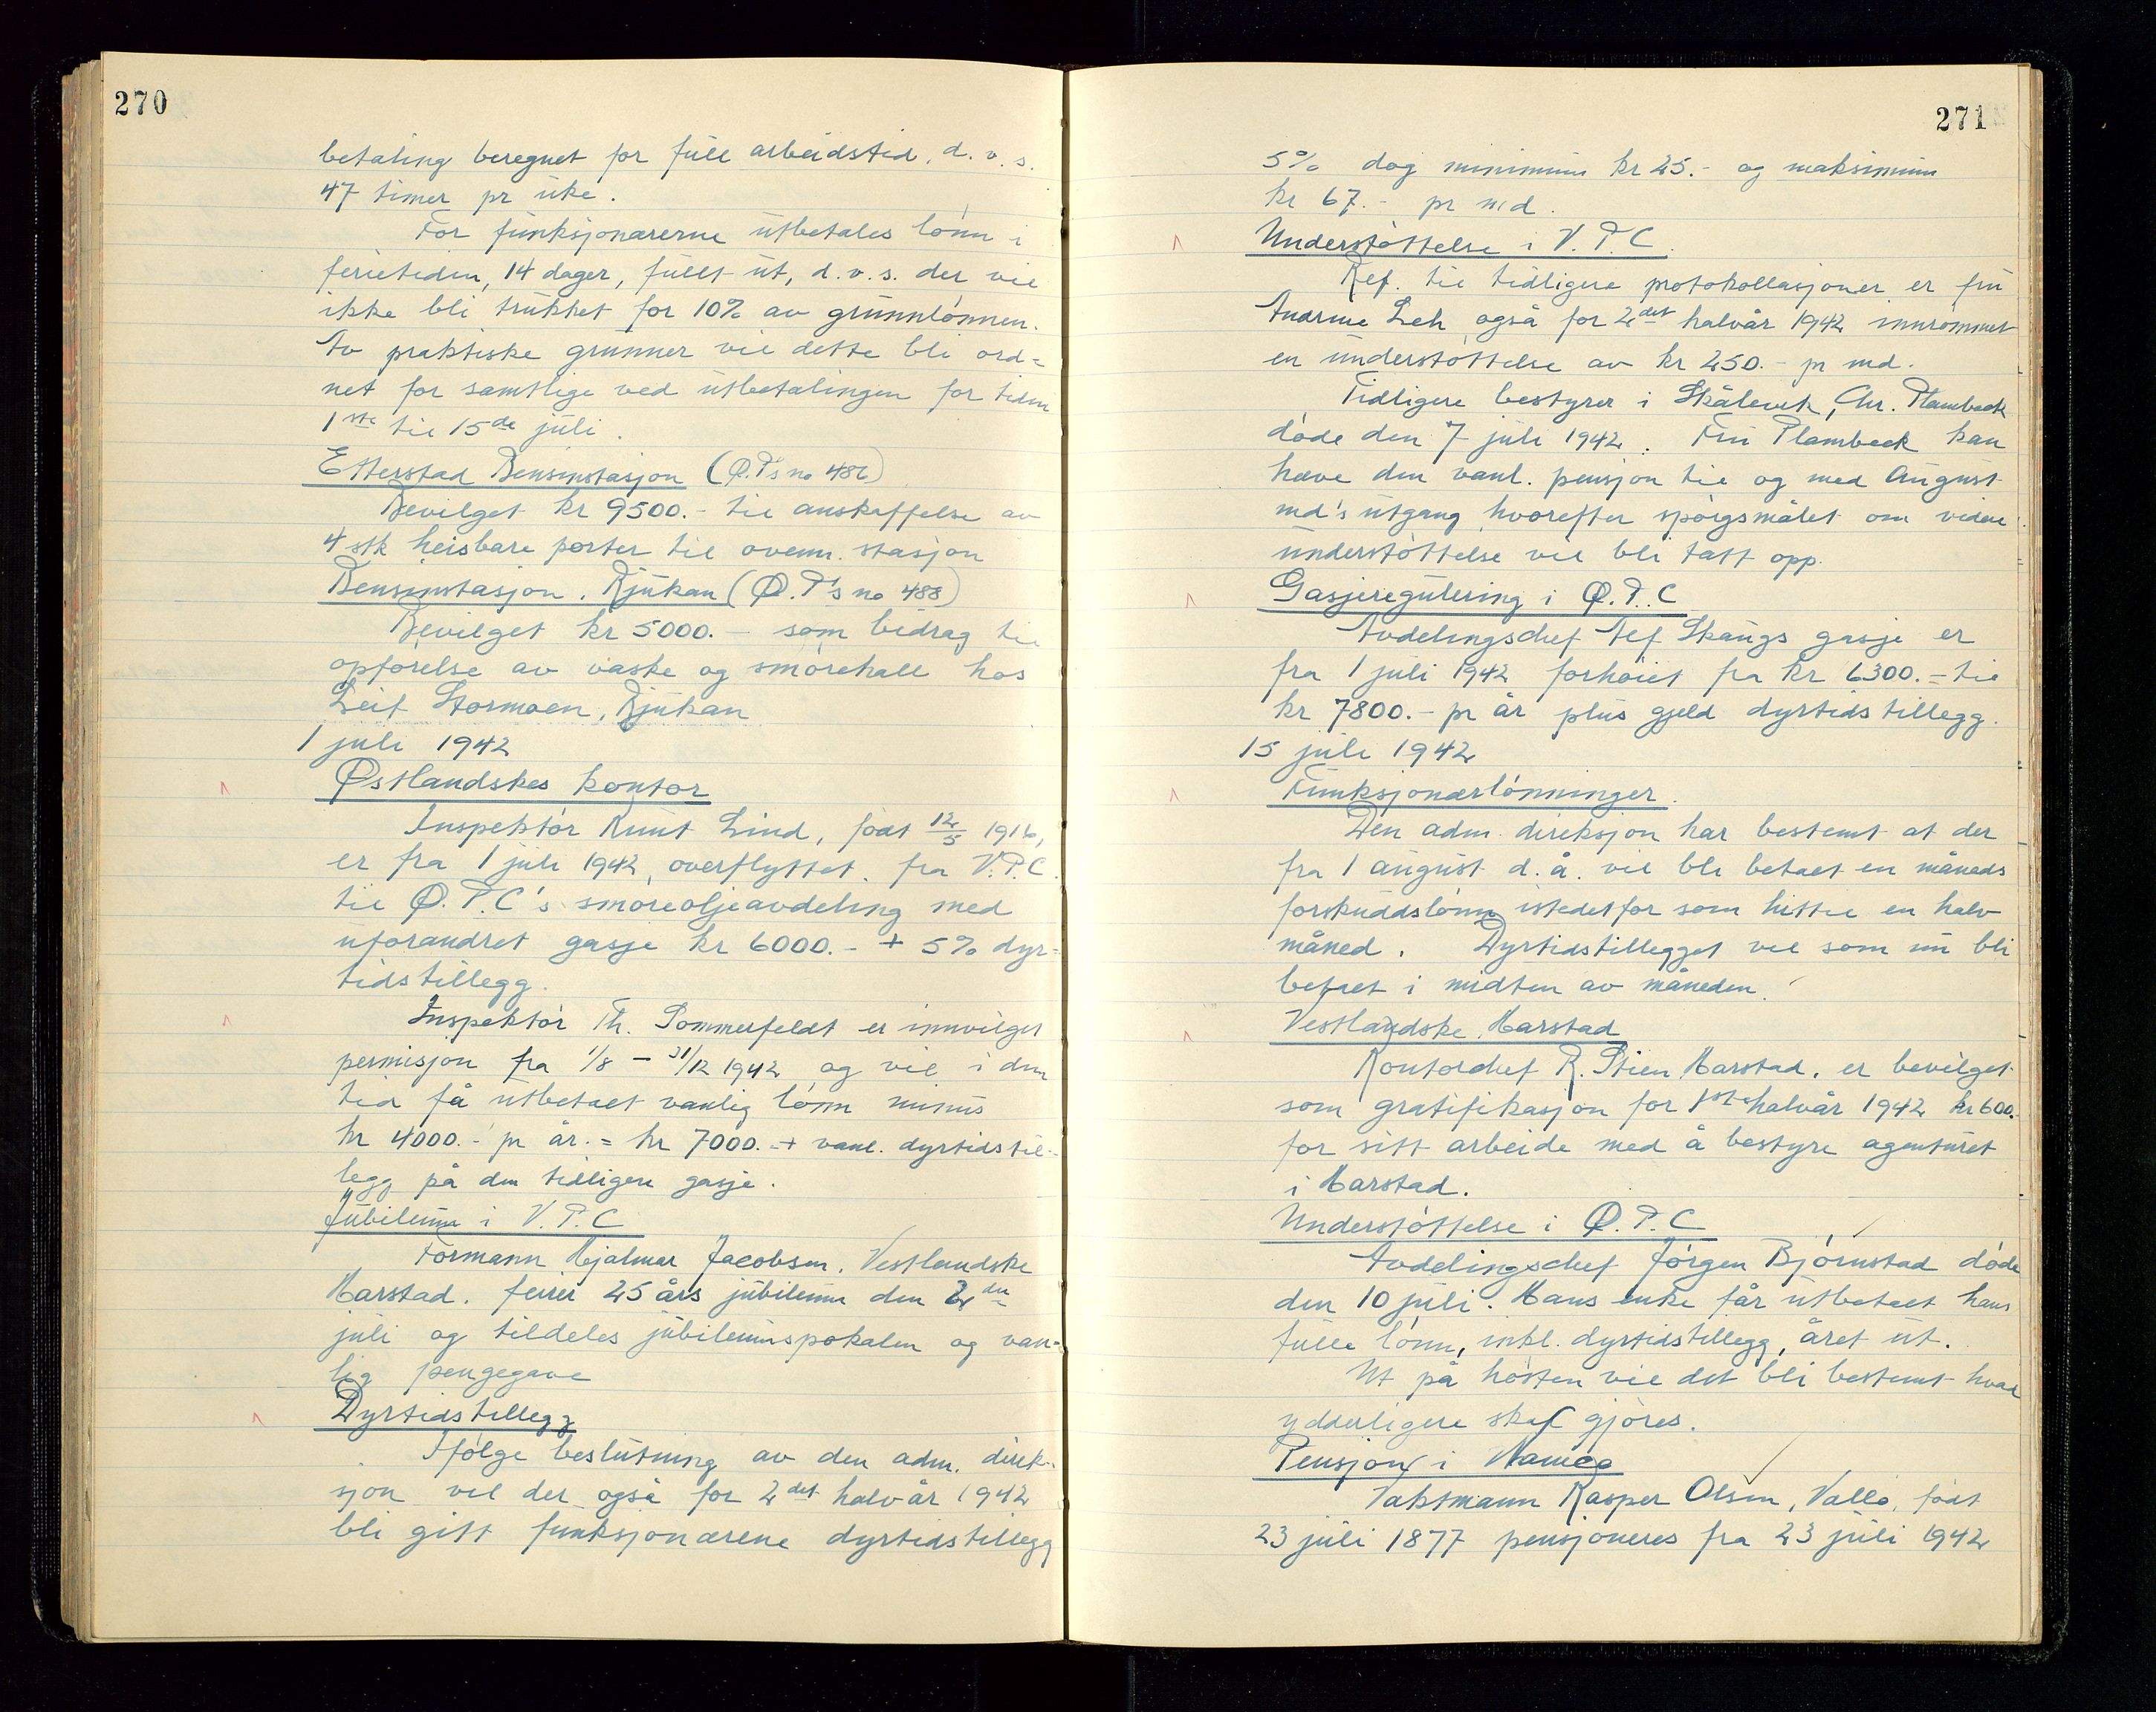 270
betaling beregnet for full arbeidstid, d. v. s.
47 timer pr uke.
For funksjonærerne utbetales lønn i
ferietiden, 14 dager, fullt ut, d. v. s. der vil
ikke bli trukket for 10% av grunnlønnen.
Av praktiske grunner vil dette bli ord=
net for samtlige ved utbetalingen for tiden
1ste til 15de juli.
Etterstad Bensinstasjon (Ø.P's no 486)
Bevilget kr 9500.- til anskaffelse av
4 stk heisbare porter til ovenn. stasjon
Bensinstasjon, Rjukan (Ø.P's no 488)
Bevilget kr 5000.- som bidrag til
opførelse av vaske og smørehall hos
Leif Stormoen, Rjukan
1 juli 1942
Østlandskes kontor
Inspektør Knut Lind, født 12/5 1916,
er fra 1 juli 1942, overflyttet fra V.P.C.
til Ø.P.C's smøreoljeavdeling med
uforandret gasje kr 6000.- + 5% dyr=
tidstillegg.
Inspektør Th. Sommerfeldt er innvilget
permisjon fra 1/8 - 31/12 1942 og vil i den
tid få utbetalt vanlig lønn minus
kr 4000.- pr år. = kr 7000.- + vanl. dyrtidstil-
legg på den tidligere gasje.
Jubileum i V.P.C
Formann Hjalmar Jacobsen, Vestlandske
Harstad. feirer 25 års jubileum den 2den
juli og tildeles jubileumspokalen og van=
lig pengegave
Dyrtidstillegg
Ifølge beslutning av den adm. direk-
sjon vil der også for 2det halvår 1942
bli gitt funksjonærene dyrtidstillegg
271
5% dog minimum kr 25.- og maksimum
kr 67.- pr md.
Understøttelse i V.P.C.
Ref. til tidligere protokollasjoner er fru
Leh også for 2det halvår 1942 innrømmet
en understøttelse av kr 250.- pr md.
Tidligere bestyrer i Skålevik, Chr. Plambeck
døde den 7 juli 1942. Fru Plambeck kan
hæve den vanl. pensjon til og med August
md's utgang hvorefter spørgsmålet om videre
understøttelse vil bli tatt opp.
Gasjeregulering i Ø.P.C
Avdelingschef Alf Skaugs gasje er
fra 1 juli 1942 forhøiet fra kr 6300.- til
kr 7800.- pr år plus gjeld dyrtidstillegg.
15 juli 1942
Funksjonærlønninger.
Den adm. direksjon har bestemt at der
fra 1 august d. å. vil bli betalt en måneds
forskuddslønn istedetfor som hittil en halv
måned. Dyrtidstillegget vil som nu bli
betalt i midten av måneden.
Vestlandske, Harstad
Kontorchef R. Stien Harstad, er bevilget
som gratifikasjon for 1ste halvår 1942 kr 600.-
for sitt arbeide med å bestyre agenturet
i Harstad.
Understøttelse i Ø.P.C
Avdelingschef Jørgen Bjørnstad døde
den 10 juli. Hans enke får utbetalt hans
fulle lønn, inkl. dyrtidstillegg, året ut.
Ut på høsten vil det bli bestemt hvad
ydderligere skal gjøres.
Pensjon i
Vaktmann Kasper Olsen, Vallø, født
23 juli 1877 pensjoneres fra 23 juli 1942